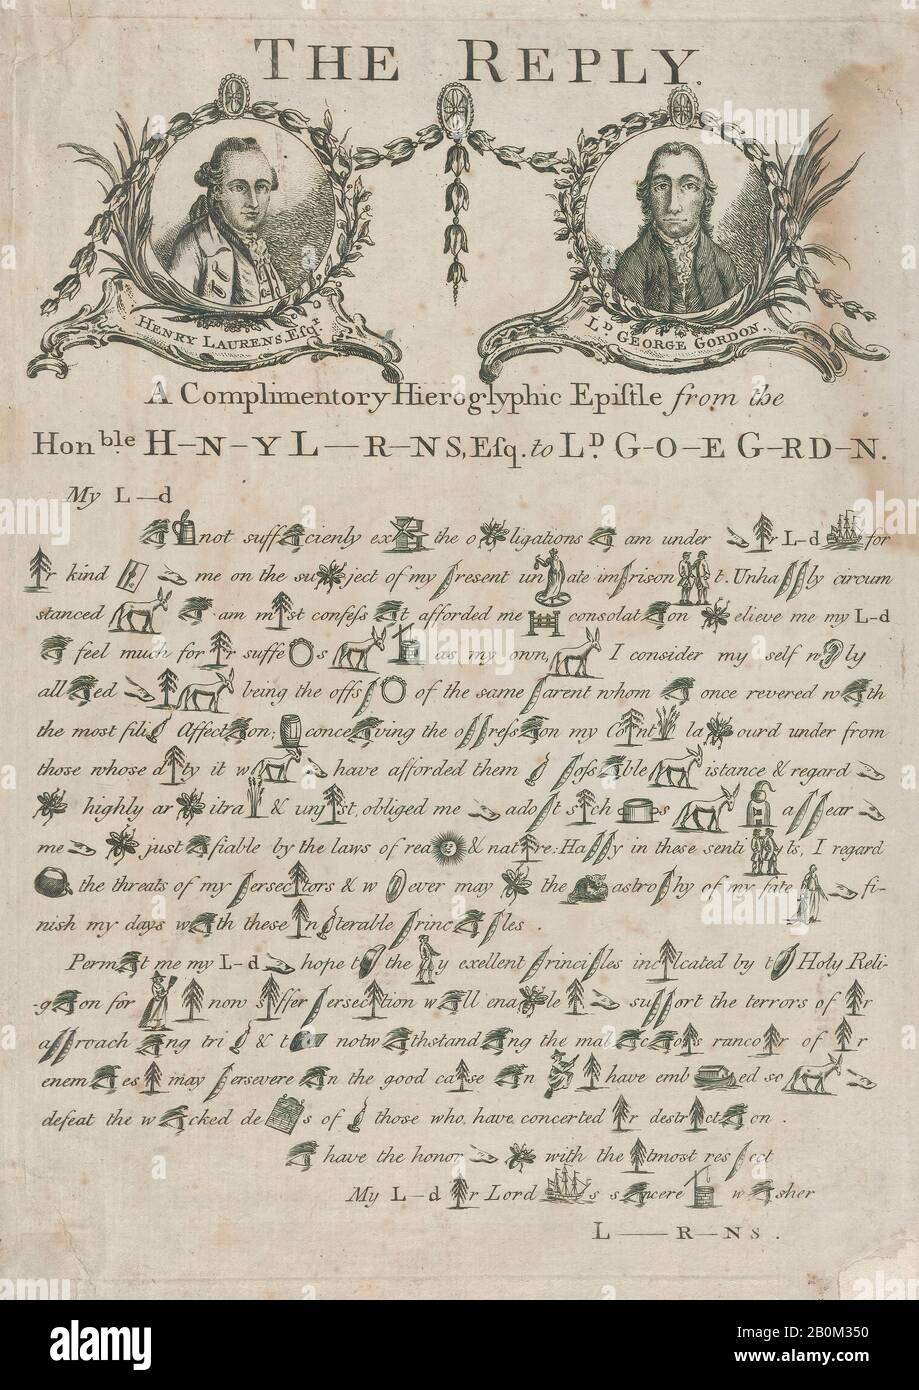 THE REPLY.
HENRY LAURENS, Esqr.
LD. GEORGE GORDON.
A Complimentory Hieroglyphic Epistle from the
Honble. H–N–Y L—R–NS, Esq. to LD. G-O–E G–RD–N.
My L—d
not suff cienly ex the o ligations am under r L-d for
r kind me on the su ject of my resent un ate im rison t. Unha ly circum
stanced am m st confess t afforded me consolat on elieve me my L-d
feel much for r suffe s as my own, I consider my self n ly
all ed being the offs of the same arent whom once revered w th
the most fili Affect on; conce ving the o ress on my Co nt la ourd under from
those whose d ty it w have afforded them oss ble istance & regard
highly ar itra & unj st, obliged me ado t s ch s a ear
me just fiable by the laws of rea & nat re: Ha y in these senti ts, I regard
the threats of my ersec tors & w ever may the astro hy of my fate fi-
nish my days w th these n terable rinc les.
Perm t me my L-d hope t the y exellent rinci les inc lcated by t Holy Reli-
-g on for now s ffer ersec tion w ll ena le su ort the terrors of r
a roach ng tri & t notw thstand ng the mal c o s ranco r of r
enem es may ersevere n the good ca se n have emb ed so
defeat the w cked de s of those who have concerted r destr ct on.
have the honor with the tmost res ect
My L-d r Lord s s ncere w sher
L——R—NS.
alamy
alamy
Image ID: 2B0M350
www.alamy.com